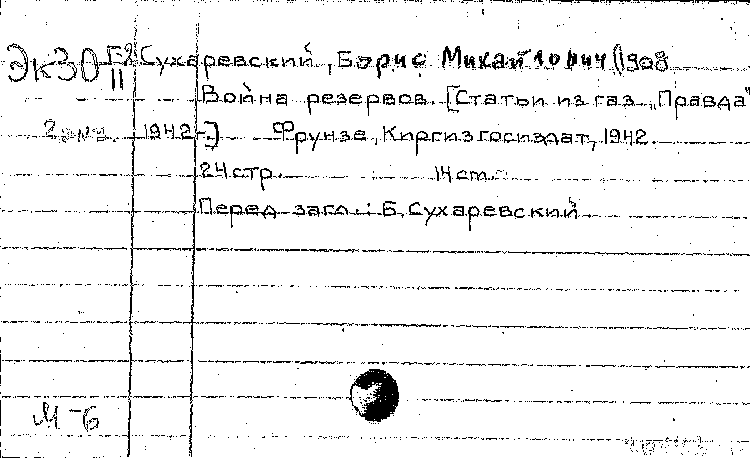 Эк30 Г-2 Сухаревский, Борис Михайлович (1908
II
Война резервов. [Статьи из газ. „Правда"
1942-] Фрунзе, Киргизгосиздат, 1942.
24 стр. 14 см.
Перед загл.: Б. Сухаревский
М-6